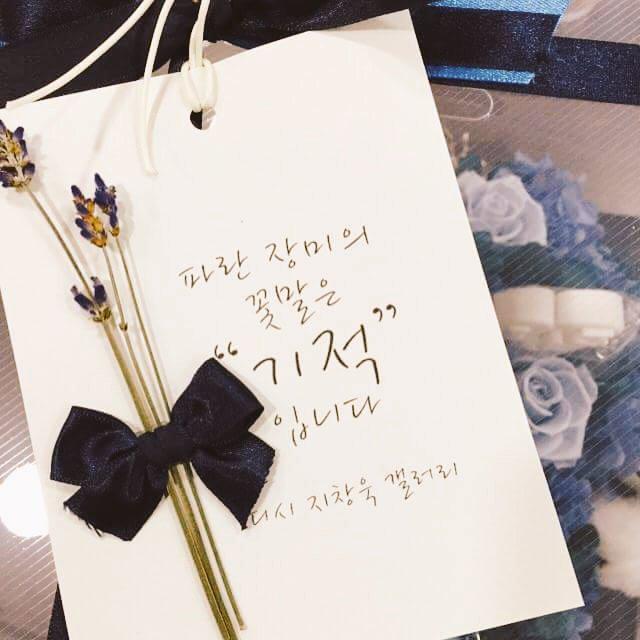 파란 장미의
꽃말은
“기적”
입니다
지창욱 갤러리